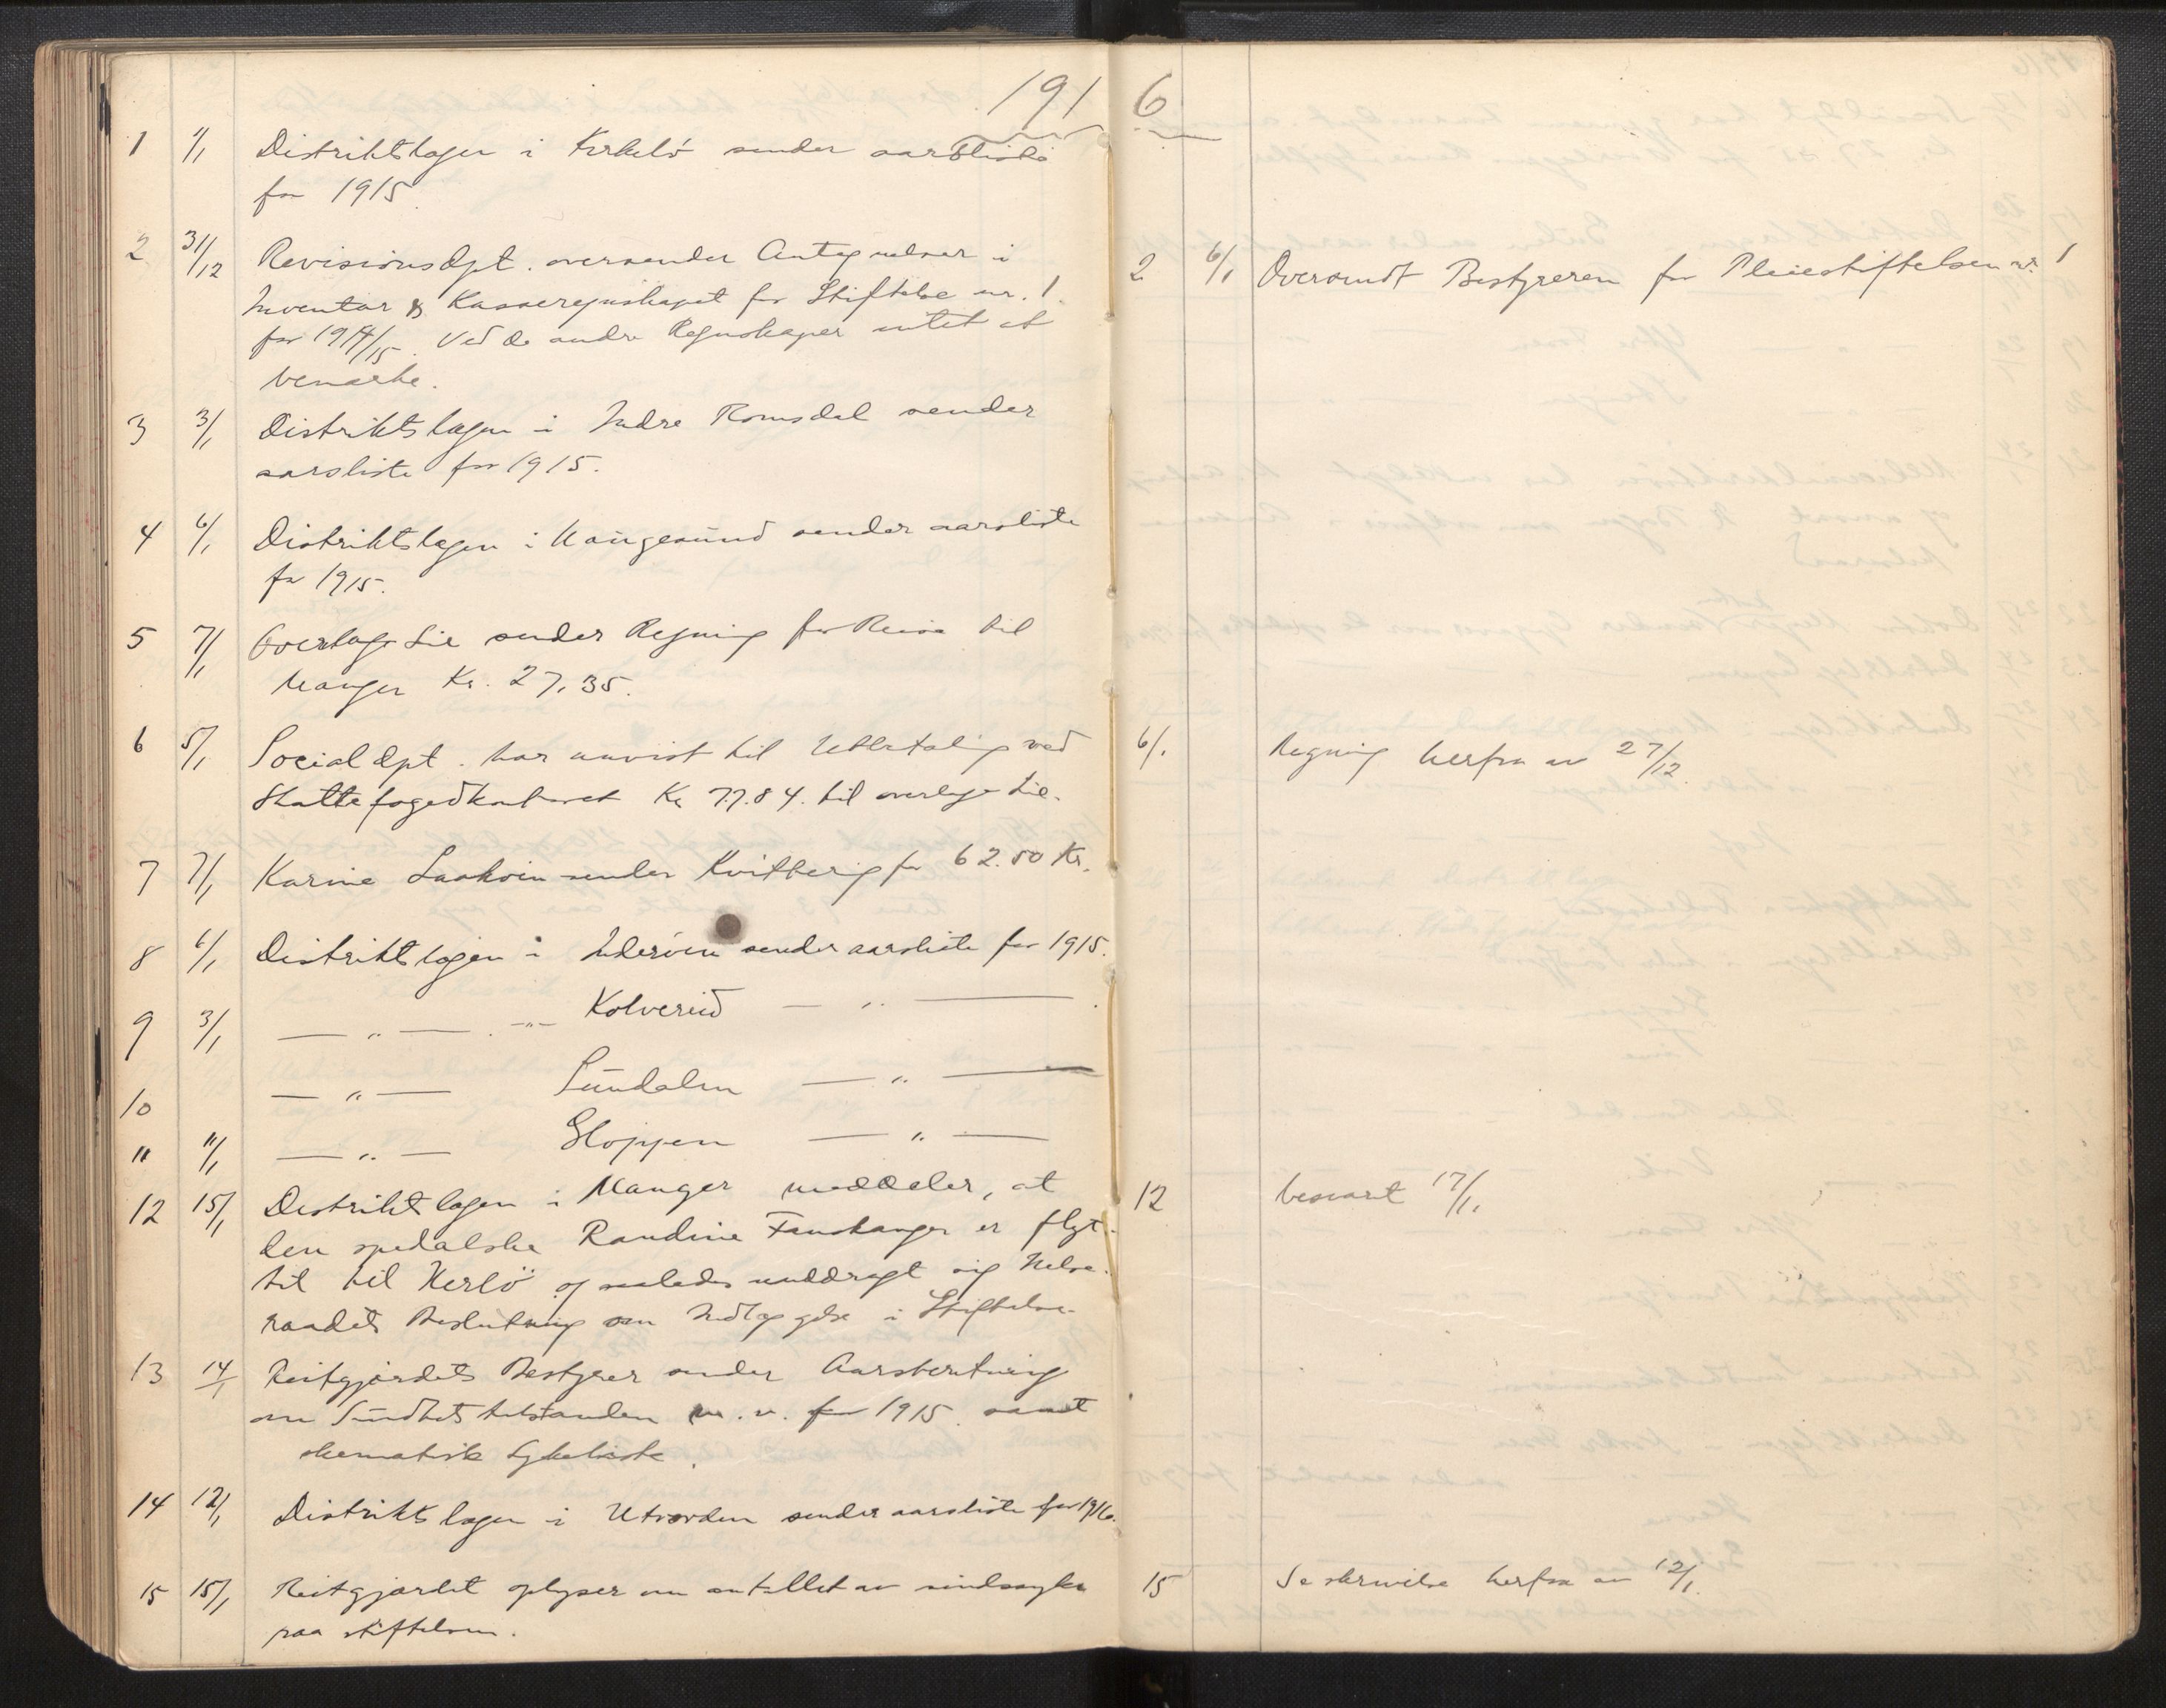 1916
1 1/1 Distriktslægen i Kirkelö sender aarsliste
for 1915.
2 31/12 Revisionsdpt. oversender Antegnelser i
Inventar & Kasseregnskapet for Stiftelse nr. 1.
for 1914/15. Ved de andre Regnskaper intet at
bemerke.
2 6/1 Oversendt Bestyreren for Pleiestiftelsen nr. 1
3 3/1 Distriktslægen i Indre Romsdal sender
aarsliste for 1915.
4 6/1 Distriktslægen i Haugesund sender aarsliste
for 1915.
5 7/1 Overlæge Lie sender Regning for Reise til
Manger Kr. 27,35.
6 5/1 Social dpt. har anvist til Utbetaling ved
Skattefogedkontoret Kr 77.84. til overlæge Lie.
6/1 Regning herfra av 27/12.
7 7/1 Karine sender Kvittering for 62.50 Kr.
8 6/1 Distriktslægen i Inderöen sender aarsliste for 1915.
9 3/1 — " — . —"— Kolvereid — " —
10 — " — Sundalen — " —
11 11/1 — " — Gloppen — " —
12 15/1 Distriktslægen i Manger meddeler, at
den spedalske Randine Fanskanger er flyt-
tet til Herlö og saaledes unddraget sig Helse-
raadets Beslutning om Indlæggelse i Stiftelse.
12 besvart 17/1.
13 14/1 Reitgjærdets Bestyrer sender Aarsberetning
om Sundhetstilstanden m. v. for 1915. samt
skematisk Sykeliste.
14 12/1 Distriktslægen i Utvorden sender aarsliste for 1916.
15 15/1 Reitgjærdet oplyser om antallet av sindssyke
paa stiftelsen.
15 Se skrivelse herfra av 12/1.